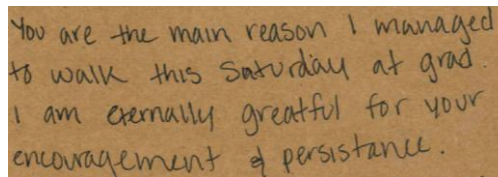 You are the main reason I managed
to walk this Saturday at grad.
I am eternally greatful for your
encouragement & persistance.